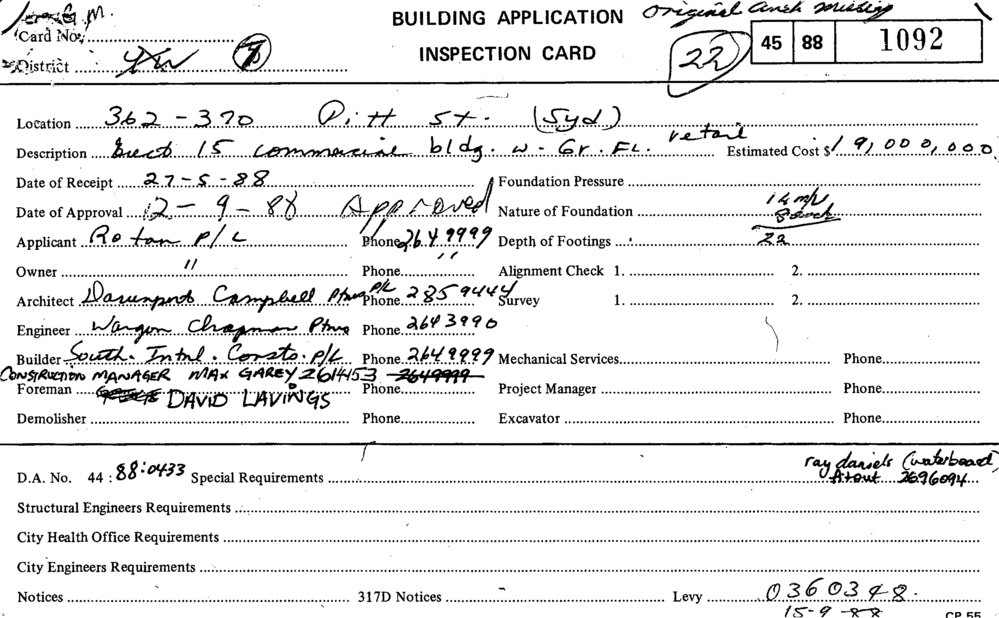 G.M.
BUILDING APPLICATION
Original missing
Card No.
INSPECTION CARD
22
45 88 1092
District 7
Location 362-370 Pitt St. (Syd)
Description Erect 15 commercial bldg. w - Gr. FL. retail Estimated Cost $19,000,000
Date of Receipt 27-5-88 Foundation Pressure
Date of Approval 12-9-88 Approved Nature of Foundation
Applicant Rotan P/L Phone 264 9999 Depth of Footings 22
Owner " Phone " Alignment Check 1. 2.
Architect Davenport Campbell Ptnrs P/L Phone 285 9444 Survey 1. 2.
Engineer Wargon Chapman Ptnrs Phone 264 3990
Builder South. Intnl. Consto. P/L Phone 264 9999 Mechanical Services Phone
CONSTRUCTION MANAGER MAX GAREY 2614153 2649999
Foreman DAVID LAVINGS Phone Project Manager Phone
Demolisher Phone Excavator Phone
D.A. No. 44 : 88:0433 Special Requirements ray daniels (waterboard)
2696094
Structural Engineers Requirements
City Health Office Requirements
City Engineers Requirements
Notices 317D Notices Levy 0360348.
15-9-88
CP 55